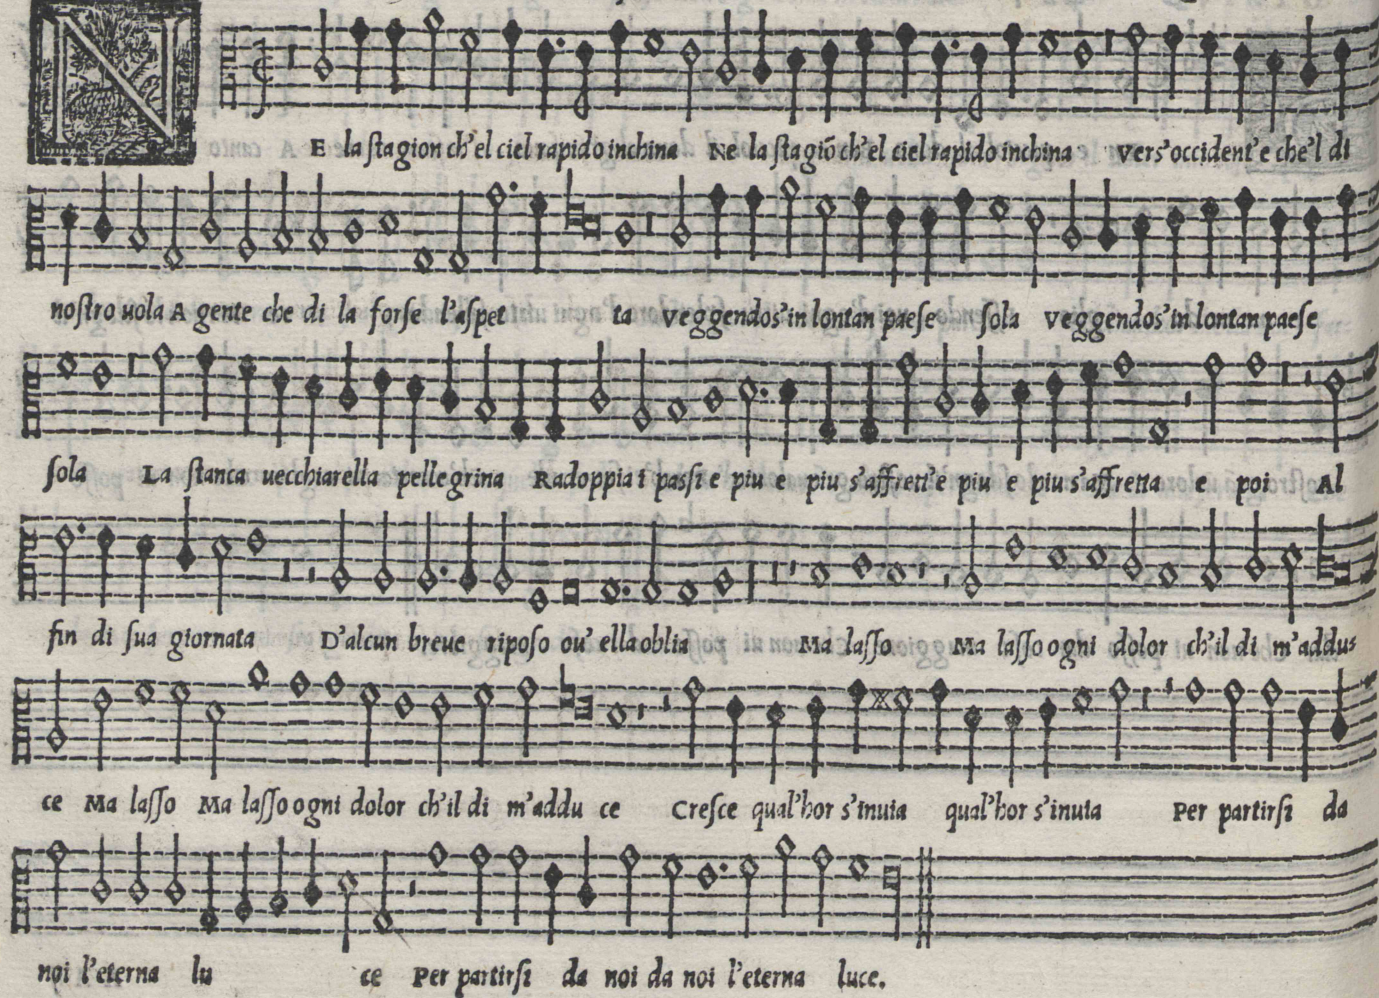 NE la ſtagion ch'el ciel rapido inchina Ne la ſtagiõ ch'el ciel rapido inchina vers'occident'e che'l di
noſtro uola A gente che di la forſe l'aſpet ta veggendos'in lontan paeſe ſola veggendos'in lontan paeſe
ſola La ſtanca uecchiarella pellegrina Radoppia i paſsi e piu e piu s'affrett'e piu e piu s'affretta e poi Al
fin di ſua giornata D'alcun breue ripoſo ou' ella oblia Ma laſſo Ma laſſo ogni dolor ch'il di m'addus
ce Ma laſſo Ma laſſo ogni dolor ch'il di m'addu ce Creſce qual'hor s'inuia qual'hor s'inuia Per partirſi da
noi l'eterna lu ce Per partirſi da noi da noi l'eterna luce.